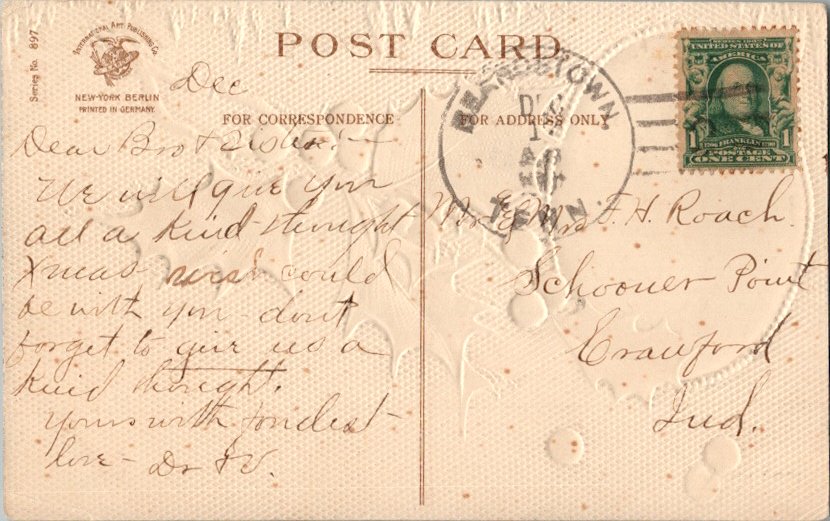 POST CARD
Series No. 897
INTERNATIONAL ART PUBLISHING CO.
NEW-YORK BERLIN
PRINTED IN GERMANY.
FOR CORRESPONDENCE
FOR ADDRESS ONLY
UNITED STATES OF
AMERICA
1 1
1706 FRANKLIN 1790
POSTAGE
ONE CENT
TOWN,
TENN.
Dec
Dear Bro & Sister:—
We will give you
all a kind thought
Xmas wish could
be with you - dont
forget to give us a
kind thought.
Yours with fondest
love - Dr & V.
Mr & Mrs F. H. Roach
Schooner Point
Crawford
Ind.